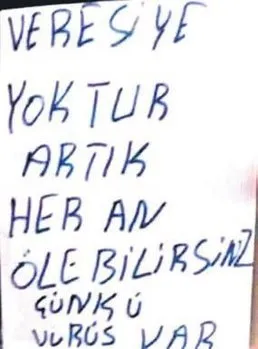 VERESİYE
YOKTUR
ARTIK
HER AN
ÖLEBİLİRSİNİZ
ÇÜNKÜ
VURÜS VAR